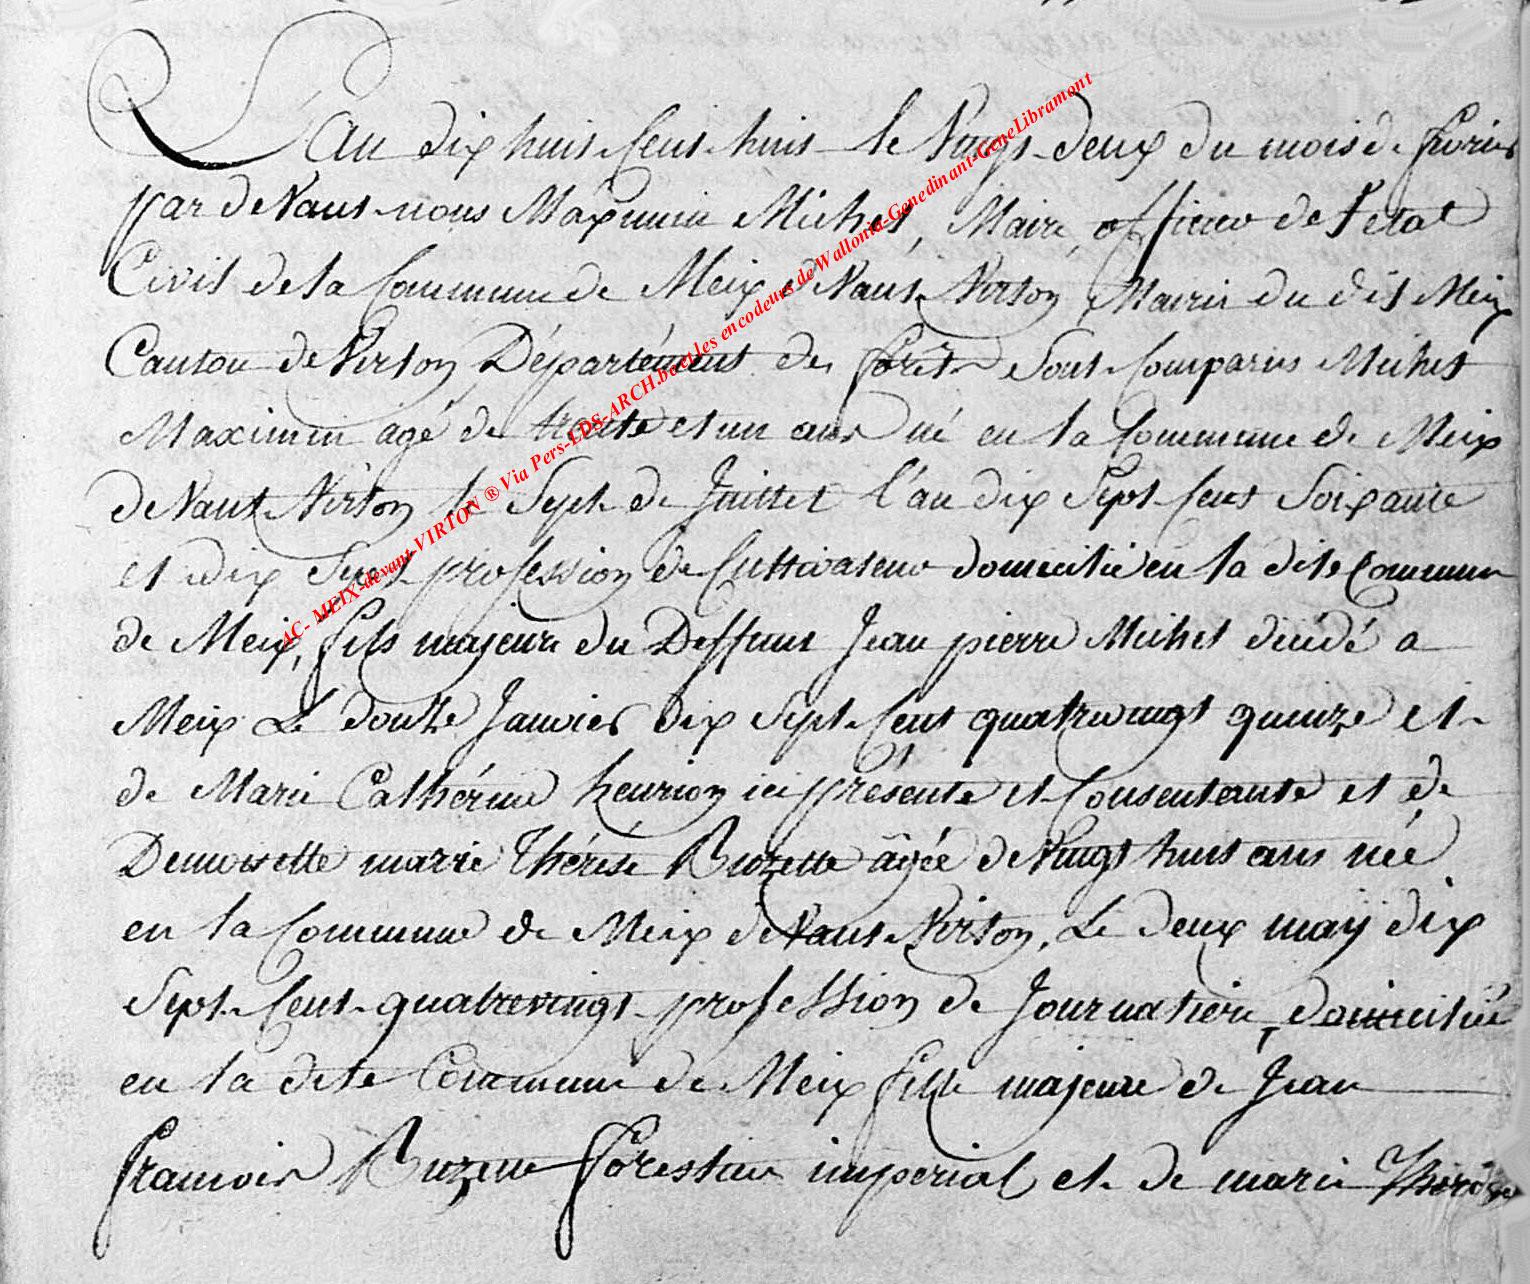 L'an dix huit Cent huit le Vingt deux du mois de fevrier
par deVant nous Maximin Michel, Maire, officier de l'etat
Civil de la Commune de Meix deVant Virton, Mairie du dit Meix
Canton de Virton, Département des forêts Sont Comparus Michel
Maximin agé de trente et un ans né en la Commune de Meix
deVant Virton le Sept de Juillet l'an dix Sept Cent Soixante
et dix Sept profession de Cultivateur domicilié en la dite Commune
de Meix, fils majeure du Deffunt Jean pierre Michel décédé a
Meix Le douze Janvier dix Sept Cent quatrevingt quinze et
de Marie Cathérine henrion ici présente et Consentante et de
Demoiselle marie Thérése Buzette âgée de Vingt huit ans née
en la Commune de Meix deVant Virton, Le deux may dix
Sept Cent quatrevingt profession de Journaliere, domiciliée
en la dite Commune de Meix fille majeure de Jean
francois Forestier imperial et de marie Thérèse
AC- MEIX-devant-VIRTON ® Via Pers-LDS-ARCH.be et les encodeurs de Wallonia-Genedinant-GeneLibramont